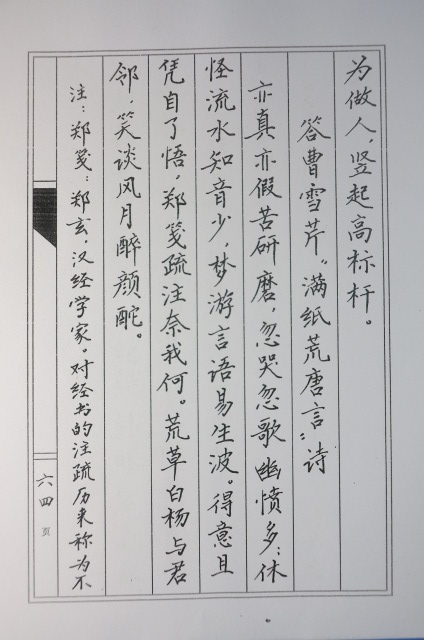 为做人，竖起高标杆。
答曹雪芹“满纸荒唐言”诗
亦真亦假苦研磨，忽哭忽歌幽愤多；休
怪流水知音少，梦游言语易生波。得意且
凭自了悟，郑笺疏注奈我何。荒草白杨与君
邻，笑谈风月醉颜酡。
注：郑笺：郑玄，汉经学家。对经书的注疏历来称为不
六四页